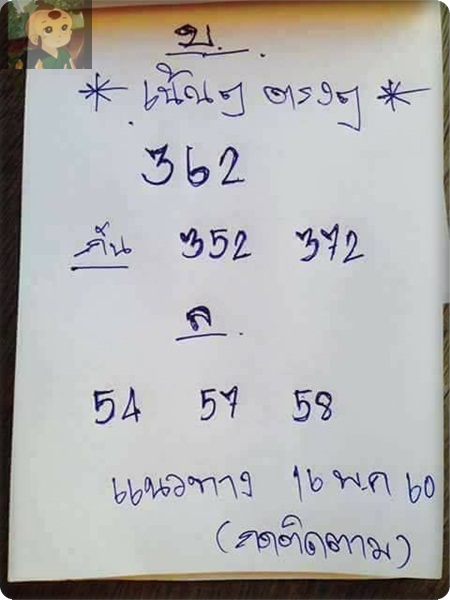 บ.
* เน้นๆ ตรงๆ *
362
กัน 352 372
ล.
54 57 58
แนวทาง 16 พ.ค 60
(กดติดตาม)